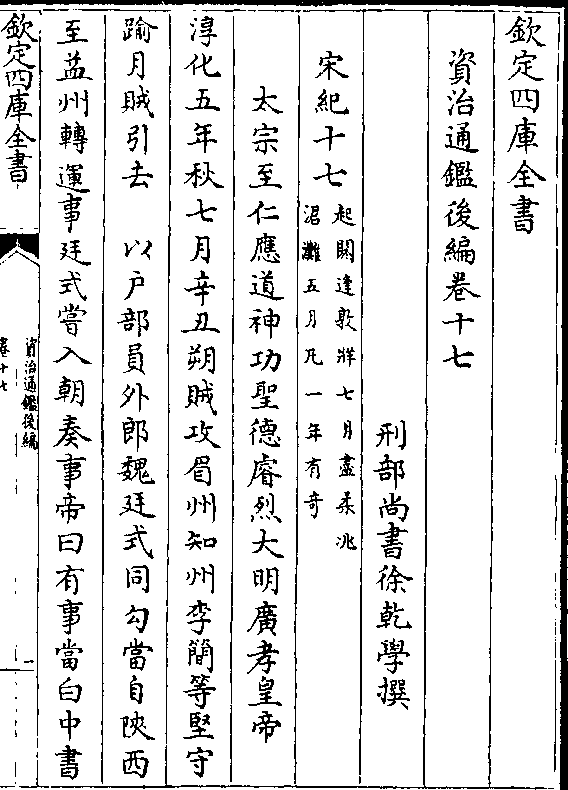 欽定四庫全書
資治通鑑後編卷十七
刑部尚書徐乾學撰
宋紀十七
起閼逢敦牂七月盡柔兆
涒灘五月凡一年有奇
太宗至仁應道神功聖德睿烈大明廣孝皇帝
淳化五年秋七月辛丑朔賊攻眉州知州李簡等堅守
踰月賊引去 以戶部員外郎魏廷式同勾當自陜西
至益州轉運事廷式嘗入朝奏事帝曰有事當白中書
欽定四庫全書
資治通鑑後編
卷十七
一